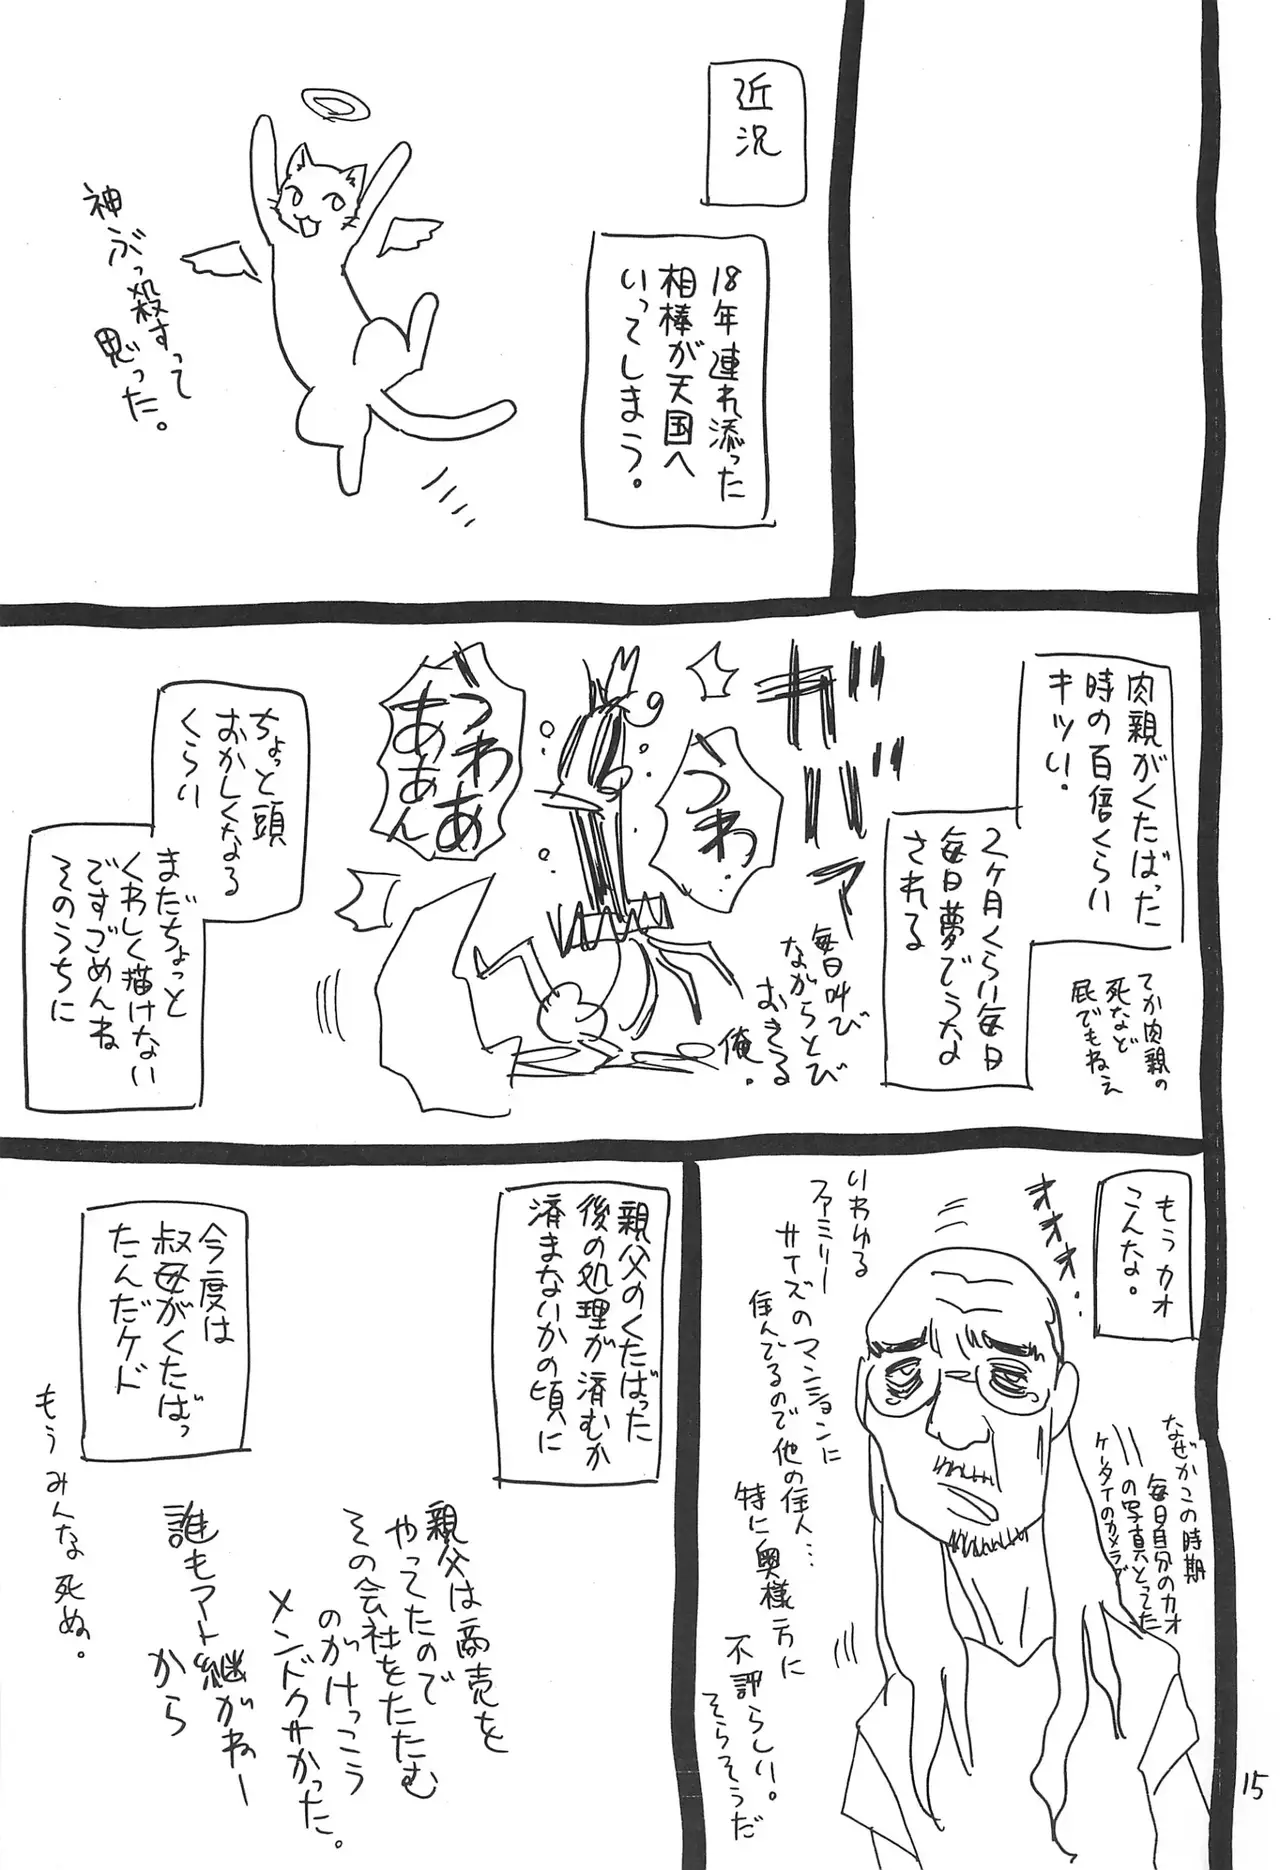 近況
18年連れ添った
相棒が天国へ
いってしまう。
神ぶっ殺すって
思った。
肉親がくたばった
時の百倍くらい
キツい。
てか肉親の
死など
屁でもねぇ
2ヶ月くらい毎日
毎日夢でうな
される
ガバァ
うわ
毎日叫び
ながらとび
おきる
俺。
うわあ
あああん
ちょっと頭
おかしくなる
くらい
まだちょっと
くわしく描けない
ですごめんね
そのうちに
もうカオ
こんな。
オオオ…
なぜかこの時期
毎日自分のカオ
の写真とってた
ケータイのカメラで
いわゆる
ファミリー
サイズのマンションに
住んでるので他の住人…
特に奥様方に
不評らしい。
そらそうだ
親父のくたばった
後の処理が済むか
済まないかの頃に
今度は
叔母がくたばっ
たんだケド
親父は商売を
やってたので
その会社をたたむ
のがけっこう
メンドクサかった。
誰もアト継がねー
から
もうみんな死ぬ。
15